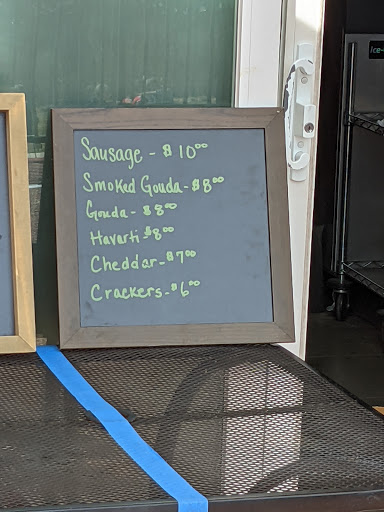 Sausage - $10⁰⁰
Smoked Gouda - $8⁰⁰
Gouda - $8⁰⁰
Havarti - $8⁰⁰
Cheddar - $7⁰⁰
Crackers - $6⁰⁰